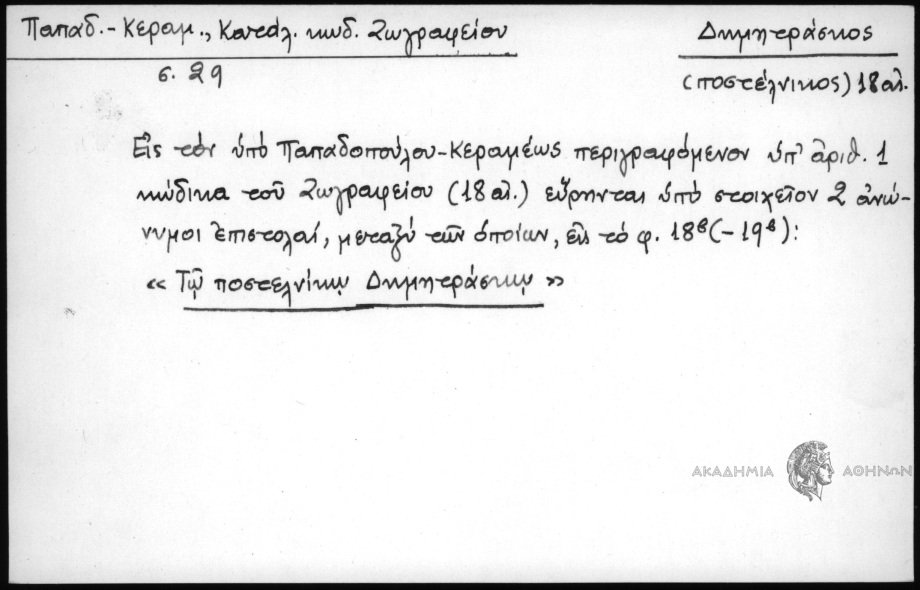 Παπαδ.-Κεραμ., Κατάλ. κωδ. Ζωγραφείου
Δημητράσκος
σ. 29
(ποστέλνικος) 18 αἰ.
Εἰς τὸν ὑπὸ Παπαδοπούλου-Κεραμέως περιγραφόμενον ὑπ' ἀριθ. 1
κώδικα τοῦ Ζωγραφείου (18 αἰ.) εὕρηνται ὑπὸ στοιχεῖον 2 ἀνώ-
νυμοι ἐπιστολαί, μεταξὺ τῶν ὁποίων, εἰς τὸ φ. 18β(-19β):
«Τῷ ποστελνίκῳ Δημητράσκῳ»
ΑΚΑΔΗΜΙΑ ΑΘΗΝΩΝ